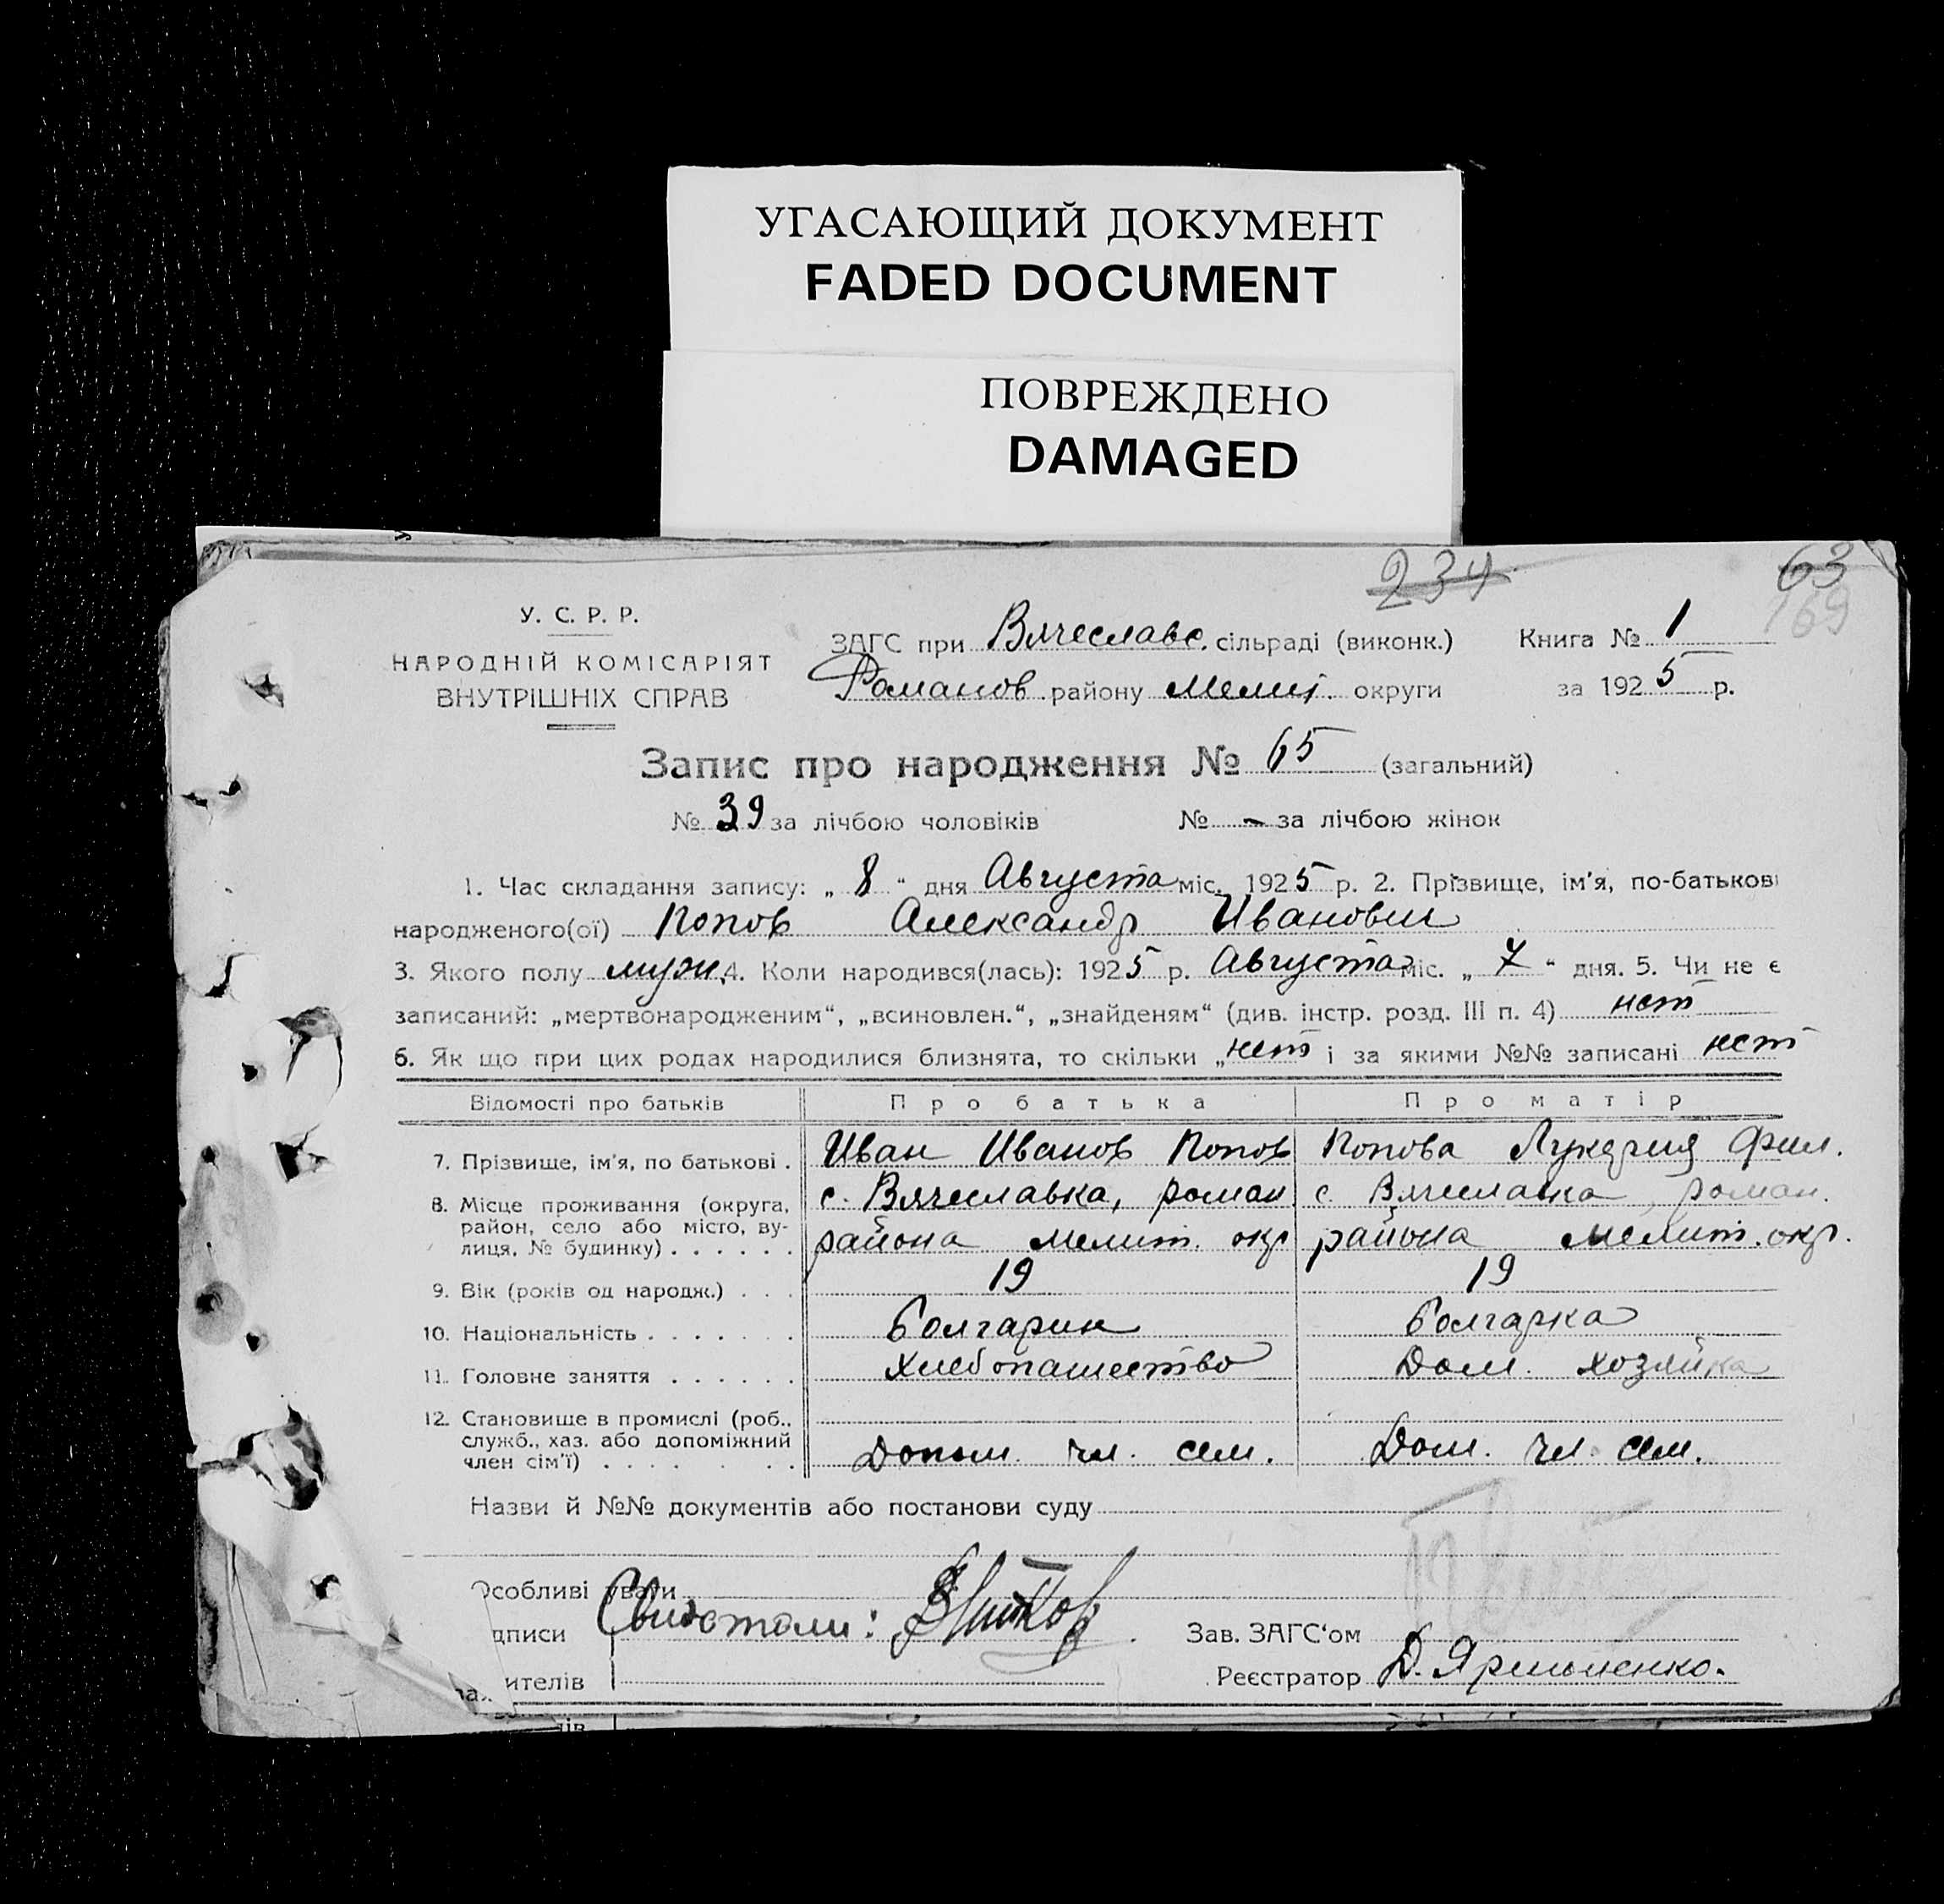 УГАСАЮЩИЙ ДОКУМЕНТ
FADED DOCUMENT
ПОВРЕЖДЕНО
DAMAGED
234
63
169
У. С. Р. Р.
НАРОДНІЙ КОМІСАРІЯТ
ВНУТРІШНІХ СПРАВ
ЗАГС при Вячеславо. сільраді (виконк.) Книга № 1
Романов району Мелит. округи за 1925 р.
Запис про народження № 65 (загальний)
№ 39 за лічбою чоловіків № - за лічбою жінок
1. Час складання запису: „ 8 “ дня Августа міс. 1925 р. 2. Прізвище, ім'я, по-батькові
народженого(ої) Попов Александр Иванович
3. Якого полу муж. 4. Коли народився(лась): 1925 р. Августа міс. „ 7 “ дня. 5. Чи не є
записаний: „мертвонародженим“, „всиновлен.“, „знайденям“ (див. інстр. розд. III п. 4) нет
6. Як що при цих родах народилися близнята, то скільки „ нет і за якими №№ записані нет
Відомості про батьків Про батька Про матір
7. Прізвище, ім'я, по батькові . Иван Иванов Попов Попова Лукерия Фил.
8. Місце проживання (округа, с. Вячеславка, роман. с. Вячеславка, роман.
район, село або місто, ву-
лиця, № будинку) . . . . . . района мелит. окр района мелит. окр.
9. Вік (років од народж.) . . . 19 19
10. Національність . . . . . . . болгарин болгарка
11. Головне заняття . . . . . . хлебопашество Дом. хозяйка
12. Становище в промислі (роб.,
служб., хаз. або допоміжний
член сім'ї) . . . . . . . Допом. чл. сем. Дом. чл. сем.
Назви й №№ документів або постанови суду
Особливі уваги
дписи Свидетели: Зав. ЗАГС‘ом
ителів Реєстратор Д. Ярмоленко.